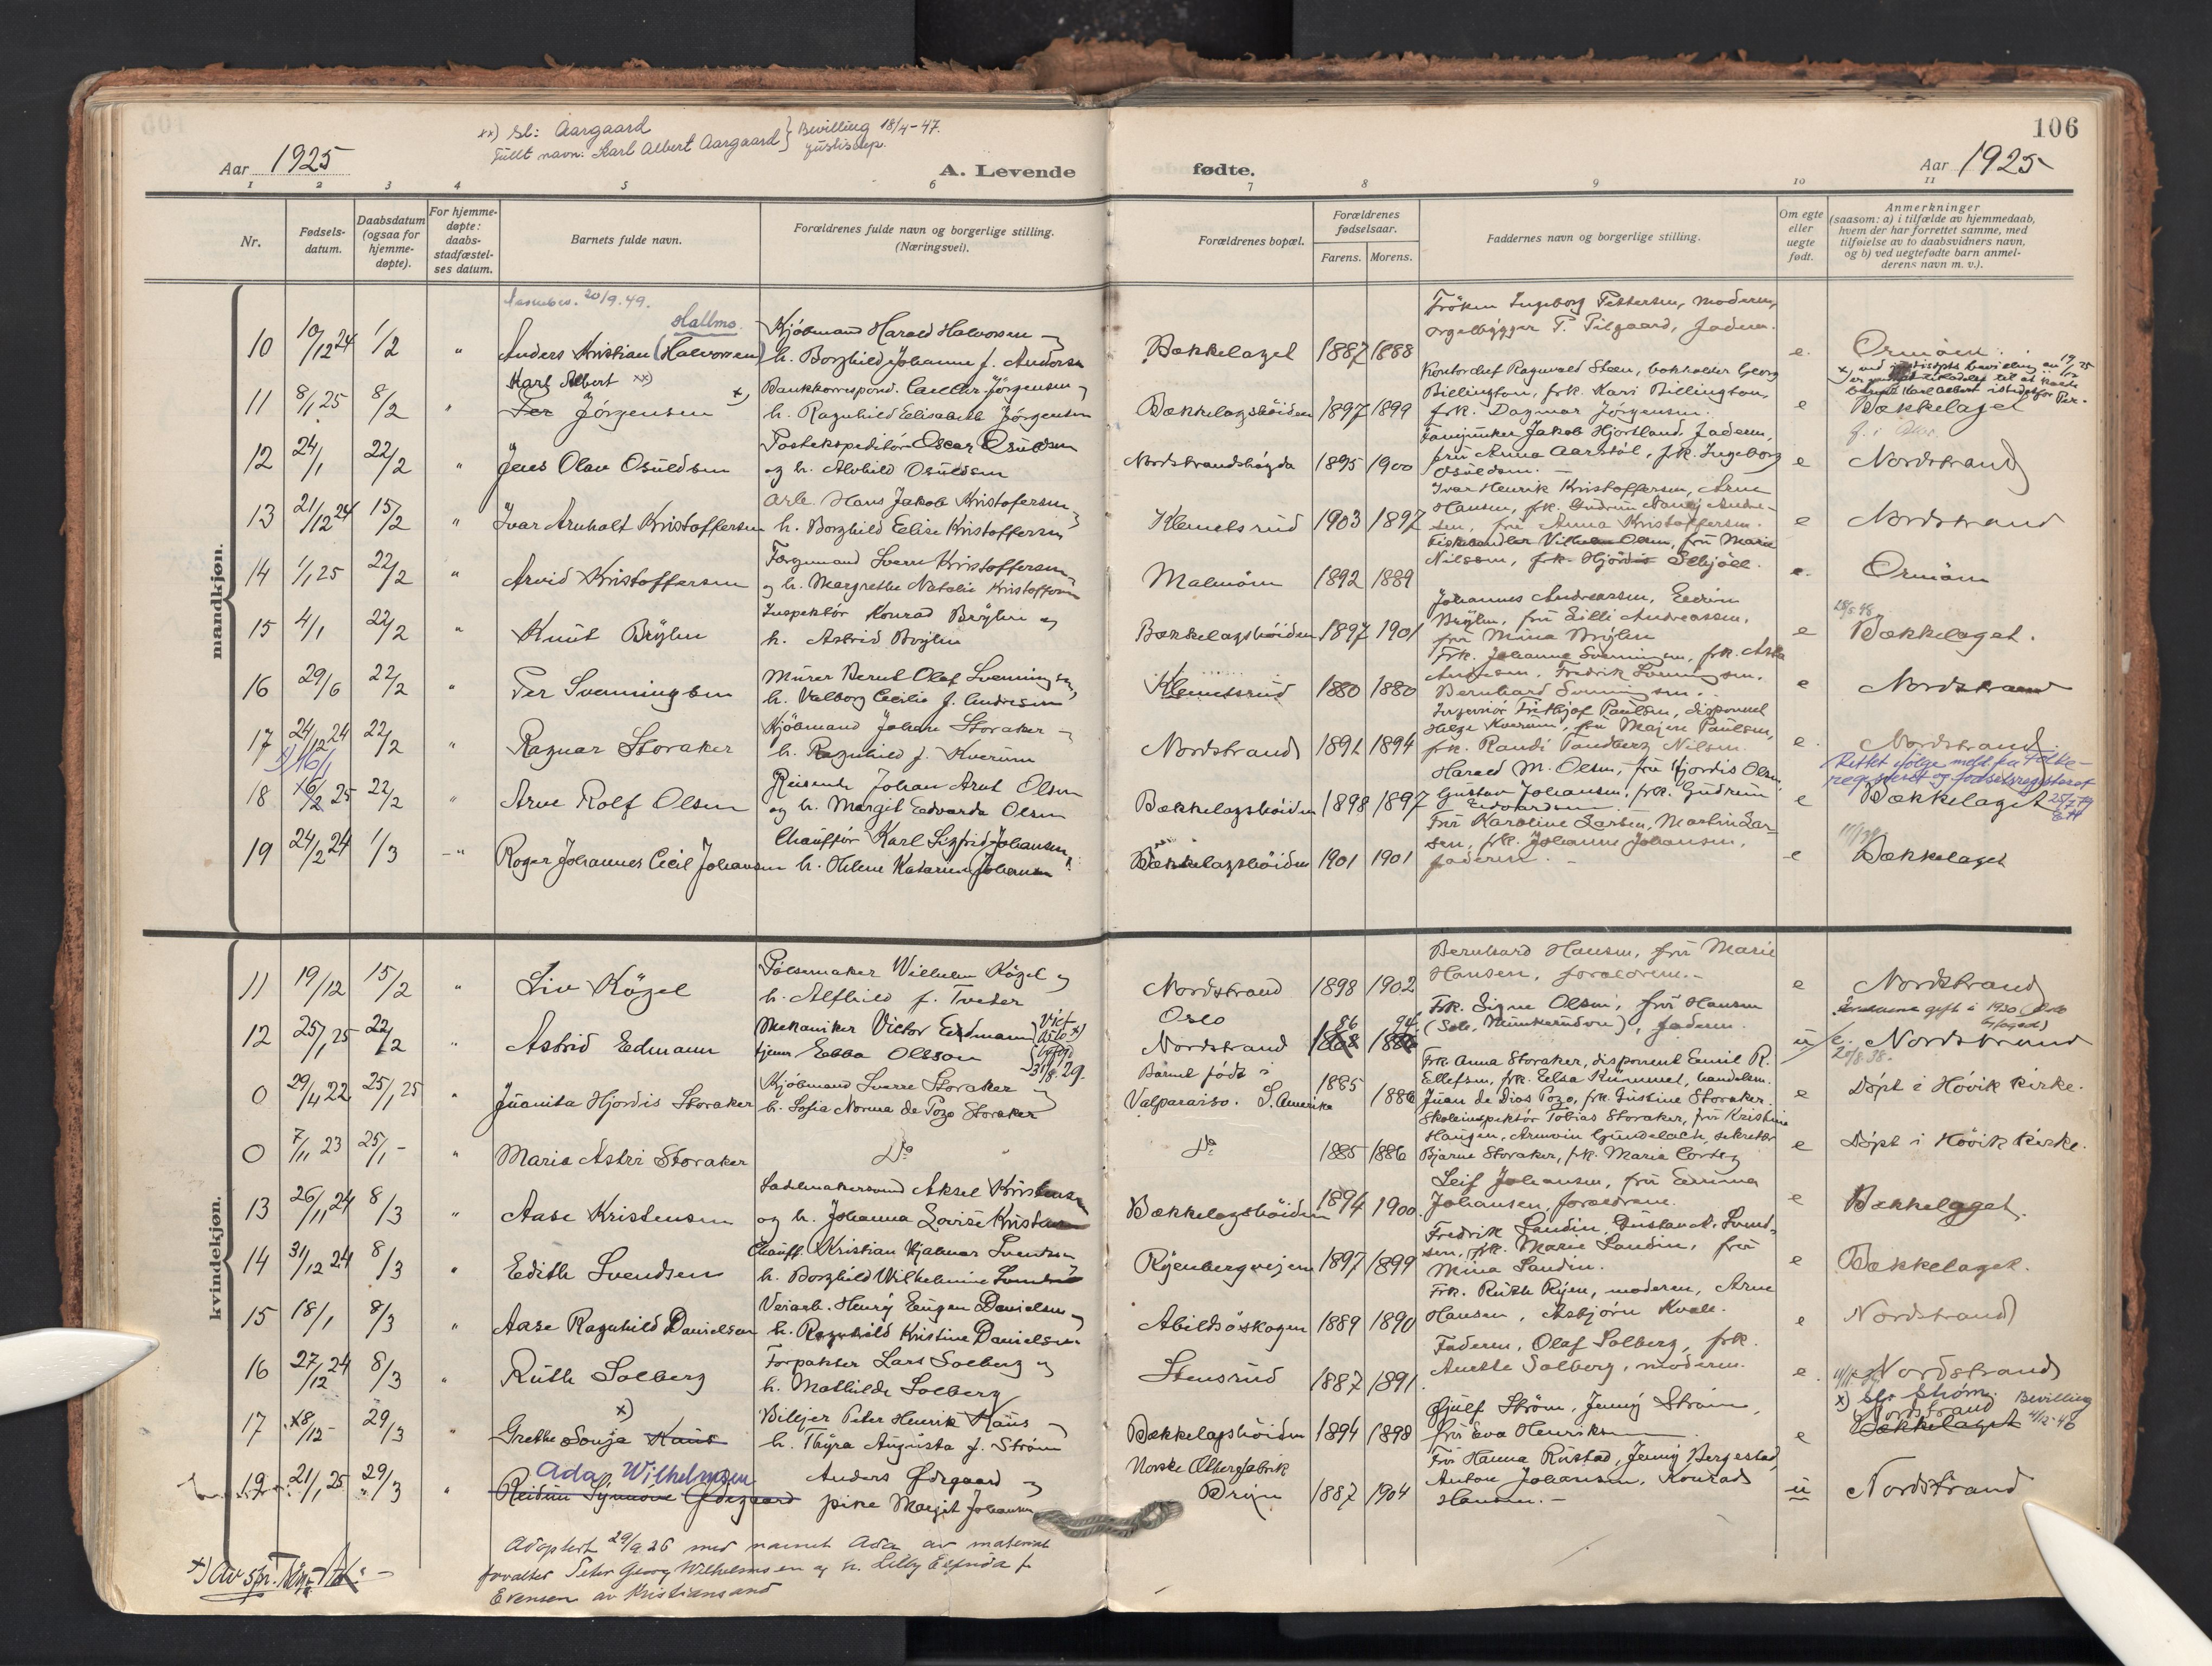 106
xx) sl: Aargaard
Fullt navn: Karl Albert Aargaard } Bevilling 18/4-47.
Justisdep.
Aar 1925
A. Levende fødte.
Aar 1925
1 2 3 4 5 6 7 8 9 10 11
Nr.
Fødsels-
datum.
Daabsdatum
(ogsaa for
hjemme-
døpte).
For hjemme-
døpte:
daabs-
stadfæstel-
ses datum.
Barnets fulde navn.
Forældrenes fulde navn og borgerlige stilling.
(Næringsvei).
Forældrenes bopæl.
Forældrenes
fødselsaar.
Farens. Morens.
Faddernes navn og borgerlige stilling.
Om egte
eller
uegte
født.
Anmerkninger
(saasom: a) i tilfælde av hjemmedaab,
hvem der har forrettet samme, med
tilføielse av to daabsvidners navn,
og b) ved uegtefødte barn anmel-
derens navn m. v.).
mandkjøn.
20/9.49.
Hallmo
10 10/12 24 1/2 " Anders Kristian (Halvorsen) Kjöbmand Harald Halvorsen
h. Borghild Johanne f. Andersen
Bækkelaget 1887 1888
Fröken Ingeborg Pettersen, moderen,
orgelbygger P. Pilgaard, faderen.
e. Ormöen
Karl Albert xx)
11 8/1 25 8/2 " Per Jörgensen x) Bankkorrespond. Jörgensen
h. Ragnhild Elisabeth Jörgensen
Bækkelagshöiden 1897 1899
Kontorchef Ragnvald Steen, bokholder Georg
Billington, frk. Kari Billington,
frk. Dagmar Jörgensen.
e Bækkelaget
12 24/1 22/2 " Jens Olav Osuldsen Postekspeditör Oscar Osuldsen
og h. Alvhild Osuldsen
Nordstrandshögda 1895 1900
Fanejunker Jakob Hjortland, faderen,
fru Anna Aarstöl, frk. Ingeborg
Osuldsen.
e Nordstrand
13 21/12 24 15/2 " Ivar Arnholt Kristoffersen Arb. Hans Jakob Kristofersen
h. Borghild Elise Kristoffersen
Klemetsrud 1903 1897
Ivar Henrik Kristoffersen, Arne
Hansen, frk. Gudrun Nancy Andre-
sen, fru Anna Kristoffersen.
e Nordstrand
14 1/1 25 22/2 " Arvid Kristoffersen Færgemand Sverre Kristoffersen
og h. Margrethe Natalie Kristoffersen
Malmöen 1892 1889
Fiskehandler Vilhelm Olsen, fru Marie
Nilssen, frk. Hjördis Selsjöll.
e. Ormöen
15 4/1 22/2 " Knut Brylm Inspektör Konrad Brylm og
h. Astrid Brylm
Bækkelagshöiden 1897 1901
Johannes Andreassen, Edvin
Brylm, fru Lilli Andreassen,
fru Mina Brylm
e Bækkelaget.
16 29/6 22/2 " Per Svenningsen Murer Bernt Olaf Svenningsen,
h. Valborg Cecilie f. Andresen
Klemetsrud 1880 1880
Frk. Johanne Svenningsen, frk. Asta
Andresen, Fredrik Svenningsen,
Bernhard Svenningsen.
e Nordstrand
17 24/12 24 22/2 " Ragnar Storaker Kjöbmand Johan Storaker
h. Ragnhild f. Kverum
Nordstrand 1891 1894
Ingeniör Frithjof Paulsen, disponent
Helge Kverum, fru Majen Paulsen,
frk. Randi Tandberg Nilsen.
e. Nordstrand
Rettet ifölge meld. fra Folke-
registeret og fødselsregisteret
x) 16/1
18 16/2 25 22/2 " Arne Rolf Olsen Reisende Johan Arnt Olsen
og h. Margit Edvarda Olsen
Bækkelagshöiden 1898 1897
Harald M. Olsen, fru Hjordis Olsen,
Gustav Johansen, frk. Gudrun
Edvardsen
e Bækkelaget
19 24/2 24 1/3 " Roger Johannes Cecil Johansen Chaufför Karl Sigfrid Johansen
h. Helene Katarina Johansen
Bækkelagshöiden 1901 1901
Fru Karoline Larsen, Martin Lar-
sen, frk. Johanne Johansen,
faderen.
e Bækkelaget
kvindekjøn.
11 19/12 15/2 " Liv Kögel Pölsemaker Wilhelm Kögel og
h. Alfhild f. Tveter
Nordstrand 1898 1902
Bernhard Hansen, fru Marie
Hansen, foreldrene.
e Nordstrand
12 25/1 25 22/2 " Astrid Edmann Mekaniker Victor Erdmann
tjener Ebba Olsson
31/8.29.
Oslo
Nordstrand 86 94
Frk. Signe Olsen, fru Hansen
faderen.
u/e. Nordstrand
0 29/4 22 25/1 25 " Juanita Hjordis Storaker Kjöbmand Sverre Storaker
h. Sofia Norma de Pozo Storaker
Barnet födt i
Valparaiso. S. Amerika 1885 1886
Frk. Anna Storaker, disponent Emil R.
Ellefsen, frk. Elsa Kummel, handelsm.
Juan de Dios Pozo, frk. Justine Storaker.
e Döpt i Hövik kirke.
0 7/11 23 25/1 - " Maria Astri Storaker Do
Do 1885 1886
Skoleinspektör Tobias Storaker, fru Kristine
Haugen, Armvin Gundelach, sekretær
Bjarne Storaker, frk. Maria Cortez
e Döpt i Hövik kirke.
13 26/11 24 8/3 " Aase Kristensen Sadelmakersvend Aksel Kristensen
og h. Johanna Lovise Kristensen
Bækkelagshöiden 1894 1900
Leif Johansen, fru Emma
Johansen, forældrene.
e Bækkelaget.
14 31/12 24 8/3 " Edith Svendsen Chauff. Kristian Hjalmar Svendsen
h. Borghild Wilhelmine Svendsen
Ryenbergveien 1897 1899
Fredrik Sandin, Gustav A. Svend-
sen, frk. Marie Sandin, fru
Mina Sandin.
e Bækkelaget.
15 18/1 8/3 " Aase Ragnhild Danielsen Veiarb. Henry Eugen Danielsen
h. Ragnhild Kristine Danielsen
Abildsöskogen 1889 1890
Frk. Ruth Ryen, moderen, Arne
Hansen, Asbjörn Kvale.
e Nordstrand
16 27/12 24 8/3 " Ruth Solberg Forpakter Lars Solberg og
h. Mathilde Solberg
Stensrud 1887 1891
Faderen, Olaf Solberg, frk.
Anethe Solberg, moderen.
e. Nordstrand
17 18/12 - 29/3 " Grethe Sonja Knus x) Bilejer Peter Henrik Knus
h. Thyra Augusta f. Ström
Bækkelagshöiden 1894 1898
Gjulf Ström, Jenny Ström,
fru Eva Henriksen
e x) sl. Ström. Bevilling
Nordstrand 4/12-46
Bækkelaget
Ada Wilhelmsen
19 21/1 25 29/3 " Reidun Synnöve Ödegaard Anders Ødegaard
pike Margit Johansen
Norske Oljefabrik
Bryn 1887 1904
Fru Hanna Rustad, Jenny Bergestad,
Anton Johansen, Konrad
Hansen.
u Nordstrand
Adoptert 29/9 26 med navnet Ada av material-
forvalter Peter Georg Wilhelmsen og h. Lilly Elfrida f.
Evensen av Kristiansand